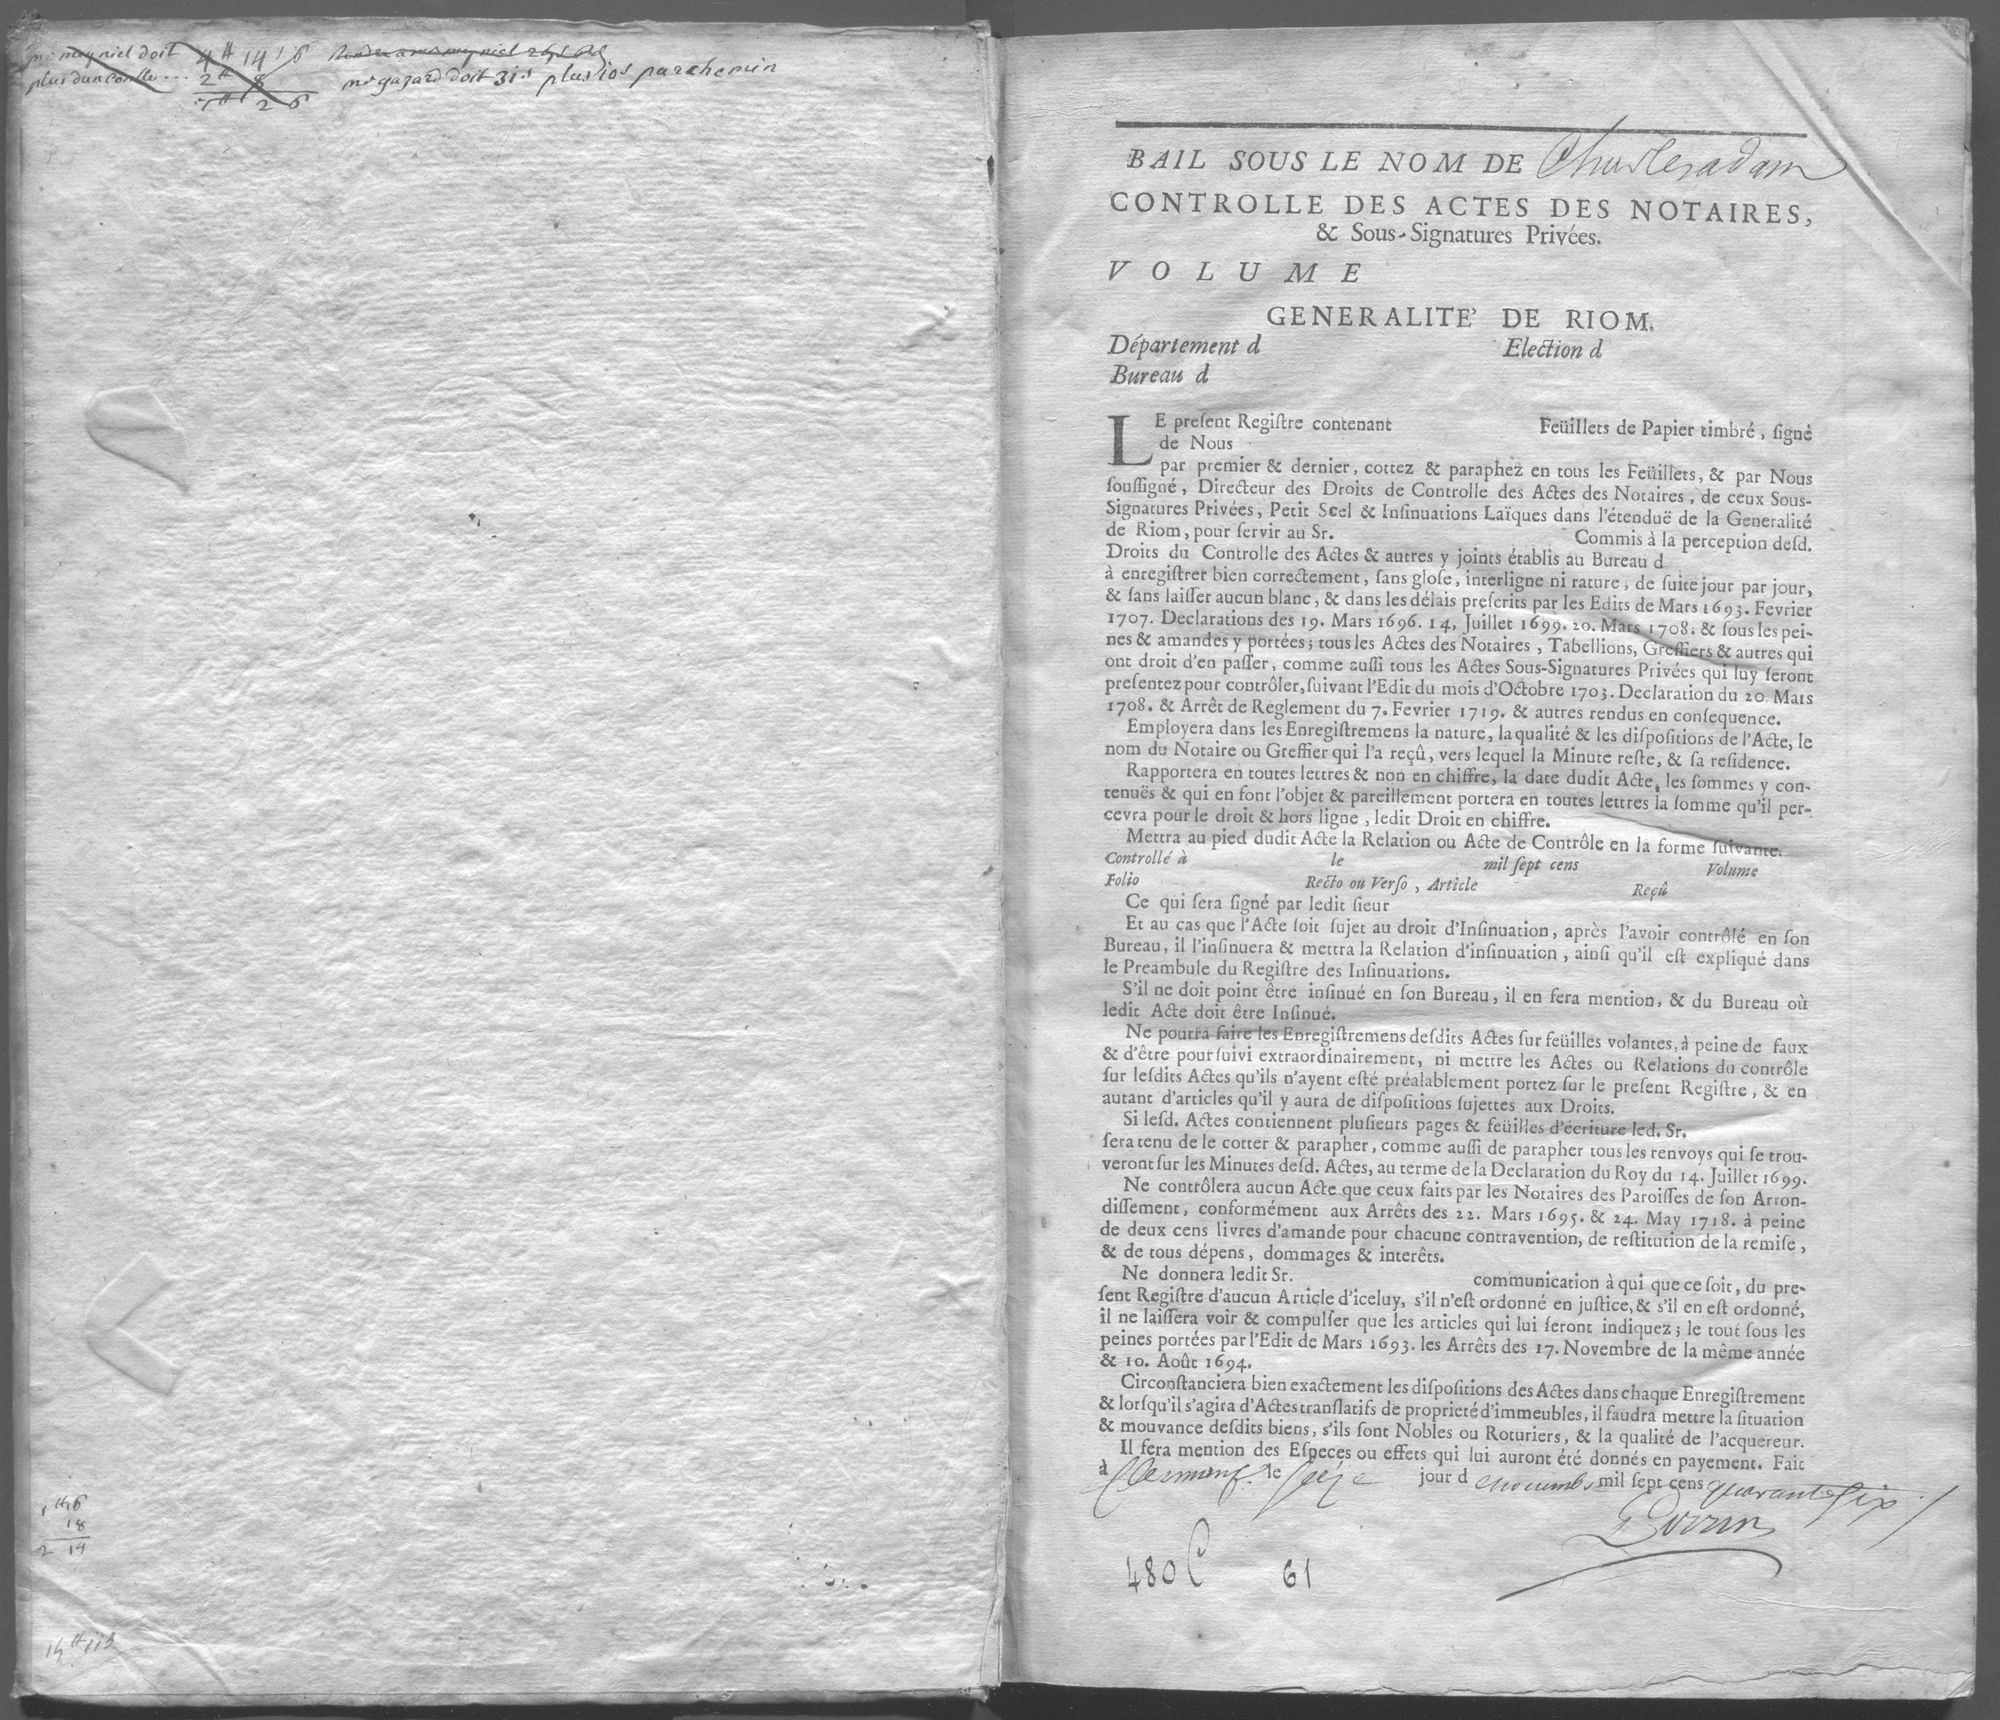 mr meyniel doit 4# 14s 6
plus dun conlle ... 2# 8
7# 2 6
mr gazard doit 31s plus 10s parchemin
1# 6
18
2 14
BAIL SOUS LE NOM DE Charles adam
CONTROLLE DES ACTES DES NOTAIRES,
& Sous-Signatures Privées.
VOLUME
GENERALITE' DE RIOM.
Département d Election d
Bureau d
LE preſent Regiſtre contenant Feüillets de Papier timbré, ſigné
de Nous
par premier & dernier, cottez & paraphez en tous les Feüillets, & par Nous
ſouſſigné, Directeur des Droits de Controlle des Actes des Notaires, de ceux Sous-
Signatures Privées, Petit Scel & Inſinuations Laïques dans l'étenduë de la Generalité
de Riom, pour ſervir au Sr. Commis à la perception deſd.
Droits du Controlle des Actes & autres y joints établis au Bureau d
à enregiſtrer bien correctement, ſans gloſe, interligne ni rature, de ſuite jour par jour,
& ſans laiſſer aucun blanc, & dans les délais preſcrits par les Edits de Mars 1693. Fevrier
1707. Declarations des 19. Mars 1696. 14, Juillet 1699. 20. Mars 1708. & ſous les pei-
nes & amandes y portées; tous les Actes des Notaires, Tabellions, Greffiers & autres qui
ont droit d'en paſſer, comme auſſi tous les Actes Sous-Signatures Privées qui luy ſeront
preſentez pour contrôler, ſuivant l'Edit du mois d'Octobre 1703. Declaration du 20. Mars
1708. & Arrêt de Reglement du 7. Fevrier 1719. & autres rendus en conſequence.
Employera dans les Enregiſtremens la nature, la qualité & les diſpoſitions de l'Acte, le
nom du Notaire ou Greffier qui l'a reçû, vers lequel la Minute reſte, & ſa reſidence.
Rapportera en toutes lettres & non en chiffre, la date dudit Acte, les ſommes y con-
tenuës & qui en font l'objet & pareillement portera en toutes lettres la ſomme qu'il per-
cevra pour le droit & hors ligne, ledit Droit en chiffre.
Mettra au pied dudit Acte la Relation ou Acte de Contrôle en la forme ſuivante.
Controllé à le mil ſept cens Volume
Folio Recto ou Verſo, Article Reçû
Ce qui ſera ſigné par ledit ſieur
Et au cas que l'Acte ſoit ſujet au droit d'Inſinuation, après l'avoir contrôlé en ſon
Bureau, il l'inſinuera & mettra la Relation d'inſinuation, ainſi qu'il eſt expliqué dans
le Preambule du Regiſtre des Inſinuations.
S'il ne doit point être inſinué en ſon Bureau, il en fera mention, & du Bureau où
ledit Acte doit être Inſinué.
Ne pourra faire les Enregiſtremens deſdits Actes ſur feüilles volantes, à peine de faux
& d'être pourſuivi extraordinairement, ni mettre les Actes ou Relations du contrôle
ſur leſdits Actes qu'ils n'ayent eſté préalablement portez ſur le preſent Regiſtre, & en
autant d'articles qu'il y aura de diſpoſitions ſujettes aux Droits.
Si leſd. Actes contiennent pluſieurs pages & feüilles d'écriture led. Sr.
ſera tenu de le cotter & parapher, comme auſſi de parapher tous les renvoys qui ſe trou-
veront ſur les Minutes deſd. Actes, au terme de la Declaration du Roy du 14. Juillet 1699.
Ne contrôlera aucun Acte que ceux faits par les Notaires des Paroiſſes de ſon Arron-
diſſement, conformément aux Arrêts des 22. Mars 1695. & 24. May 1718. à peine
de deux cens livres d'amande pour chacune contravention, de reſtitution de la remiſe,
& de tous dépens, dommages & interêts.
Ne donnera ledit Sr. communication à qui que ce ſoit, du pre-
ſent Regiſtre d'aucun Article d'iceluy, s'il n'eſt ordonné en juſtice, & s'il en eſt ordonné,
il ne laiſſera voir & compulſer que les articles qui lui ſeront indiquez; le tout ſous les
peines portées par l'Edit de Mars 1693. les Arrêts des 17. Novembre de la même année
& 10. Août 1694.
Circonſtanciera bien exactement les diſpoſitions des Actes dans chaque Enregiſtrement
& lorſqu'il s'agira d'Actes tranſlatifs de proprieté d'immeubles, il faudra mettre la ſituation
& mouvance deſdits biens, s'ils ſont Nobles ou Roturiers, & la qualité de l'acquereur.
Il fera mention des Eſpeces ou effets qui lui auront été donnés en payement. Fait
à Clermont le seize jour d novembre mil ſept cens quarante six
480 C 61